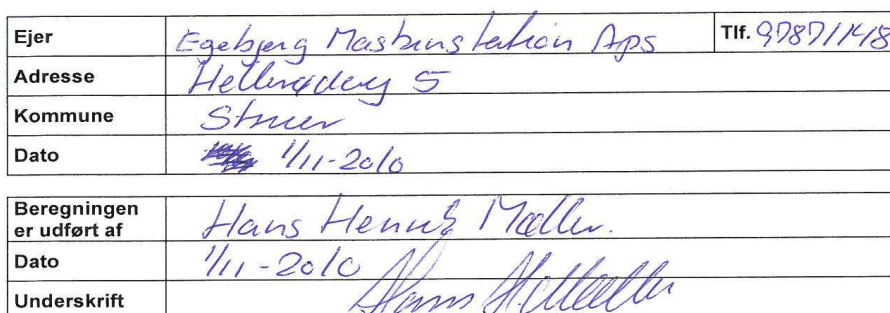 Ejer Egebjerg Maskinstation Aps Tlf. 97871148
Adresse 5
Kommune Struer
Dato 1/11-2010
Beregningen er udført af Hans Henrik Møller.
Dato 1/11-2010
Underskrift Hans H Møller